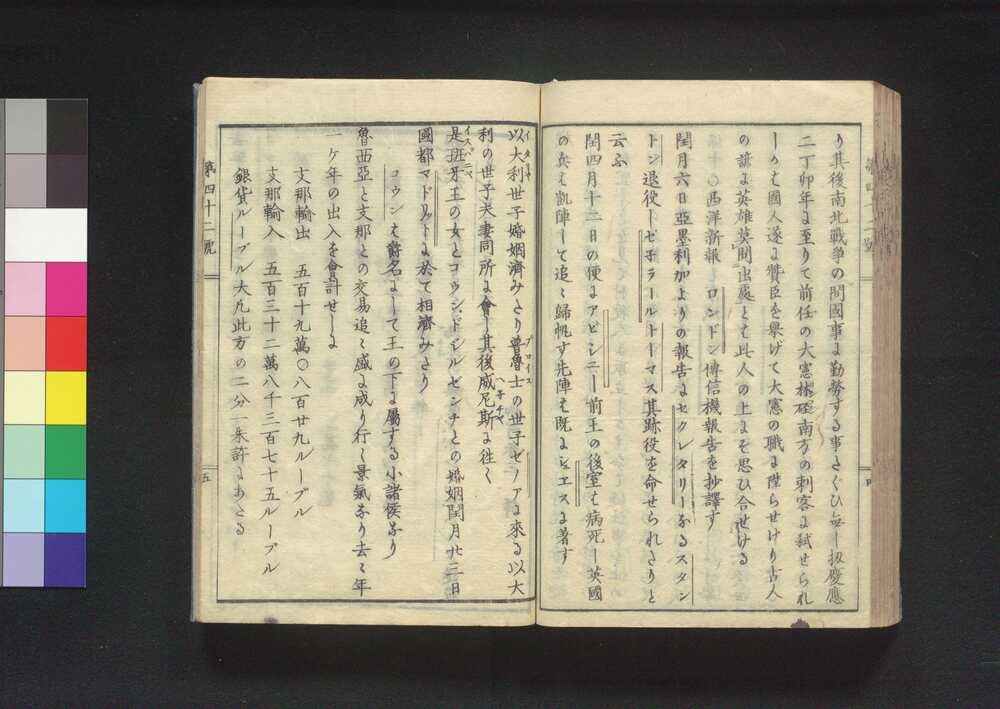 り其後南北戦争の間國事に勤勞する事たぐひ無し扨慶應
二丁卯年に至りて前任の大憲林砱南方の刺客に弑せられ
しかば國人遂に賢臣を舉げて大憲の職に陞らせけり古人
の諺に英雄莫問出處とは此人の上にぞ思ひ合せける
○西洋新報ロンドン傳信機報告を抄譯す
閏月六日亞墨利加よりの報告にセクレタリーなるスタン
トン退役しゼネラールトーマス其跡役を命せられたりと
云ふ
閏四月十二日の便にアビシニー前王の後室は病死し英國
の兵は凱陣して追々歸帆す先陣は既にシエスに著す
第四十二號
以大利世子婚姻濟みたり普魯士の世子ゼノアに來る以大
イタリヤ
プロイス
利の世子夫妻同所に會し其後威尼斯に往く
ヘネチヤ
是班牙王の女とコウンドヂルゼンチとの婚姻閏月廿三日
イスパニヤ
國都マドリットに於て相濟みたり
コウンは爵名にして王の下に屬する小諸侯なり
魯西亞と支那との交易追々盛に成り行く景氣なり去々年
一ケ年の出入を會計せしに
支那輸出 五百十九萬〇八百廿九ルーブル
支那輸入 五百三十二萬八千三百七十五ルーブル
銀貨ルーブル大凡此方の二分一朱許にあたる
第四十二號
五